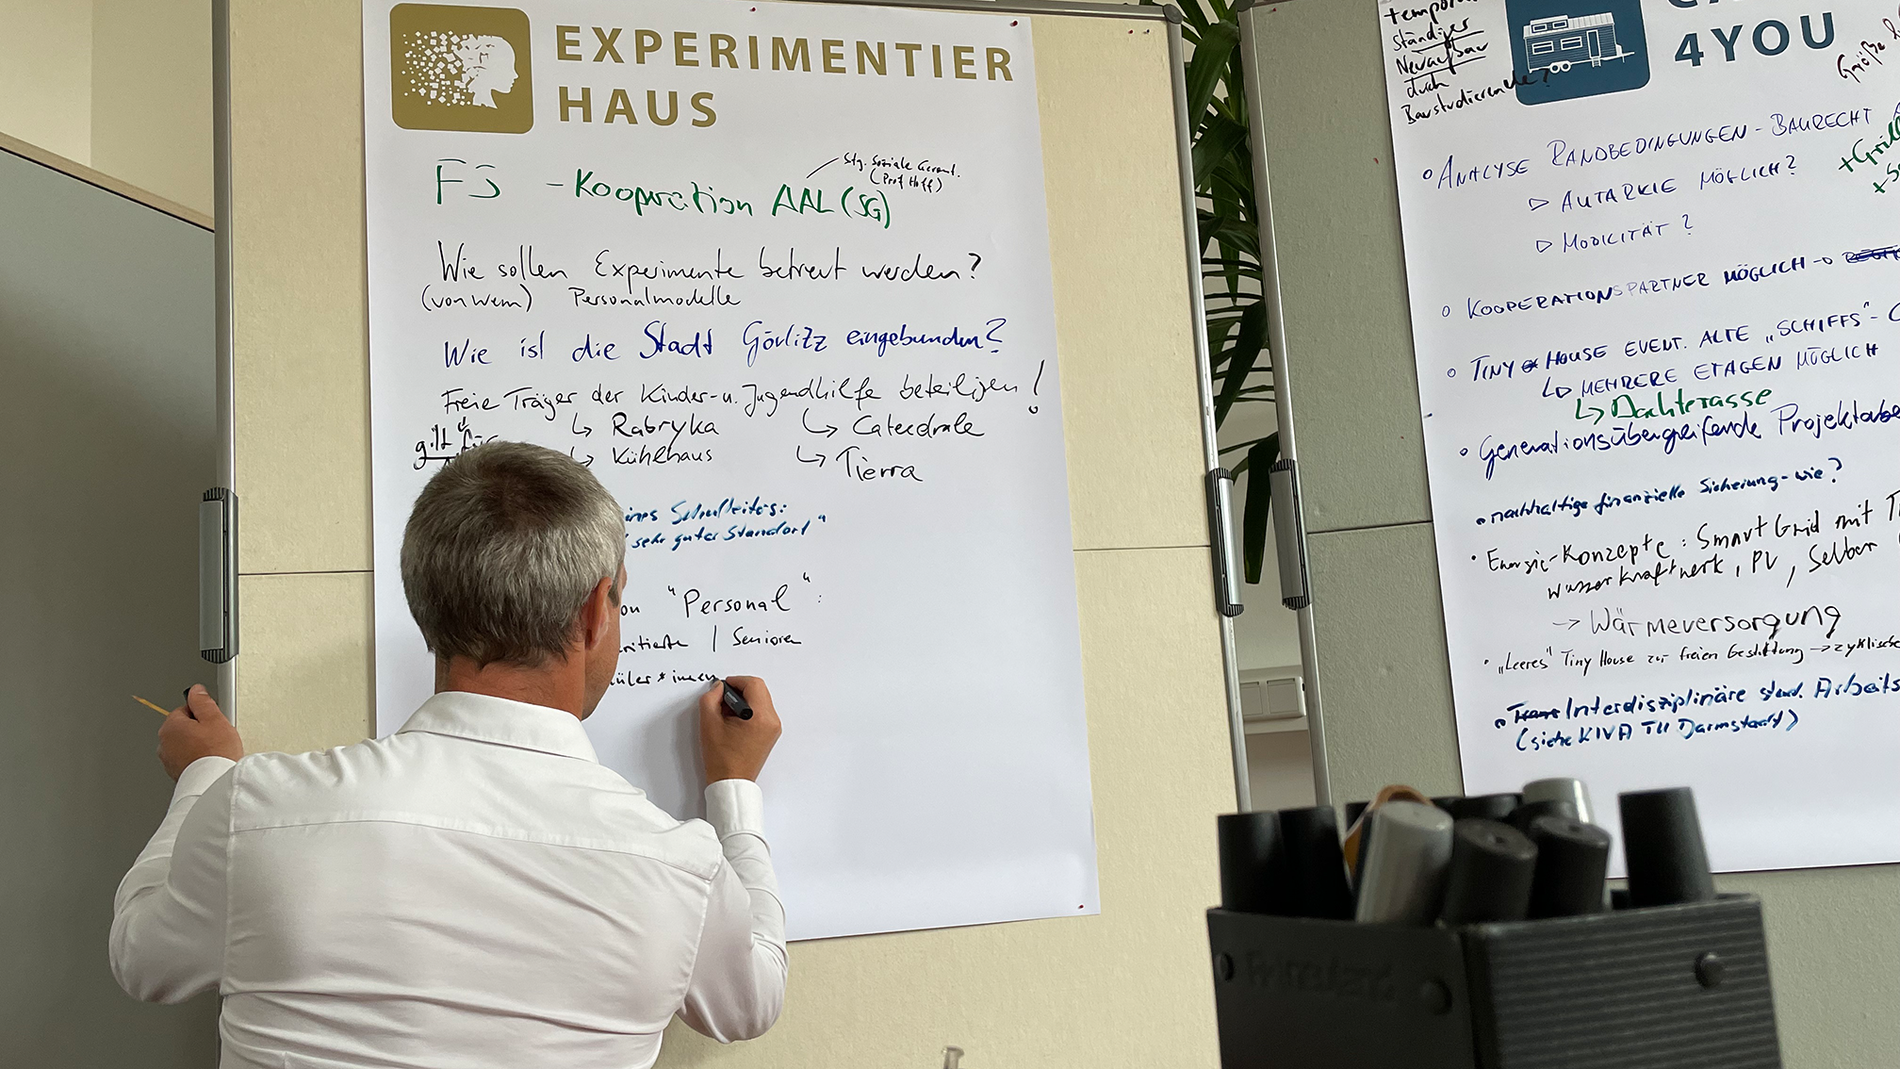 EXPERIMENTIER
HAUS
FS - Kooperation AAL (SG)
Stg. Soziale Geront.
(Prof Hoff)
Wie sollen Experimente betreut werden?
(von wem) Personalmodelle
Wie ist die Stadt Görlitz eingebunden?
Freie Träger der Kinder- u. Jugendhilfe beteiligen!
gilt
↳ Rabryka
↳ Kühlhaus
↳ Cateedrale
↳ Tierra
eines Schulleiters:
sehr guter Standort"
on "Personal":
/ Senioren
üler*innen
4YOU
temporä
Ständiger
Neuaufbau
durch
Baustudierende?
Größe
° ANALYSE RANDBEDINGUNGEN - BAURECHT
▷ AUTARKIE MÖGLICH?
▷ MOBILITÄT?
+Grill
° KOOPERATIONSPARTNER MÖGLICH
° TINY HOUSE EVENT. ALTE „SCHIFFS"-C
↳ MEHRERE ETAGEN MÖGLICH
↳ Dachterasse
• Generationsübergreifende Projektarbe
• nachhaltige finanzielle Sicherung - wie?
• Energie-Konzepte: Smart Grid mit T
wasserkraftwerk, PV, Selber
→ Wärmeversorgung
• „Leeres" Tiny House zur freien Gestaltung → zyklische
• Trans Interdisziplinäre stud. Arbeits
(siehe KIVA TU Darmstadt)